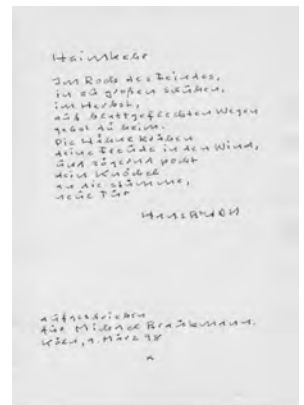 Heimkehr
Im Rock des Feindes,
in zu großen Schuhen,
im Herbst,
auf blattgefleckten Wegen
gehst du heim.
Die Hähne krähen
deine Freude in den Wind,
und zögernd pocht
dein Knöchel
an die stumme,
neue Tür
HANS BENDER
aufgeschrieben
für Michael
Köln, März 98